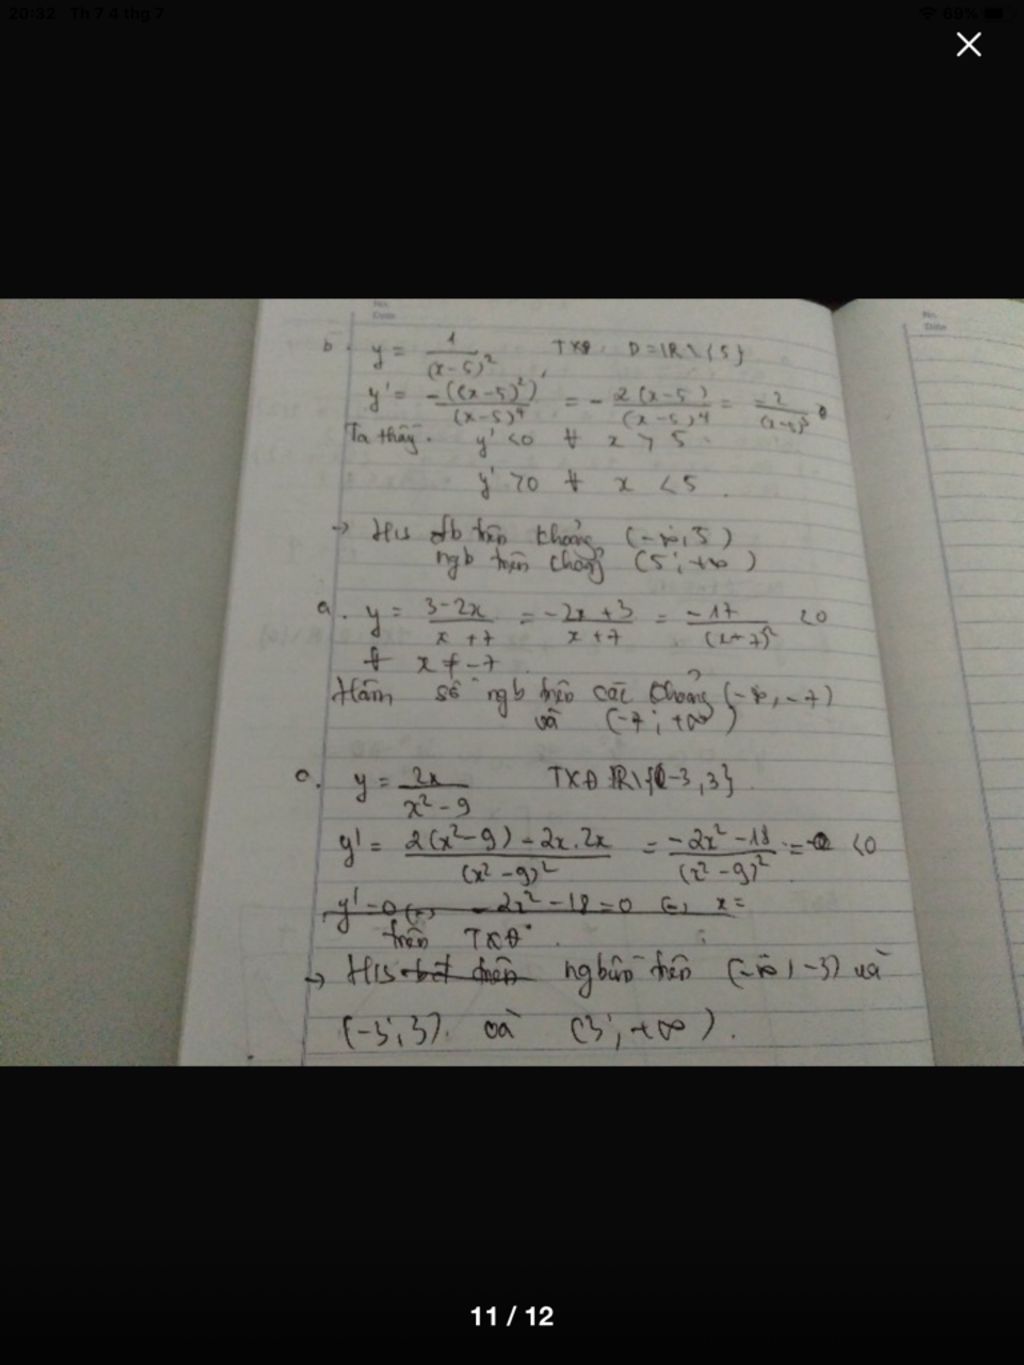 20:32 Th 7 4 thg 7
69%
No.
Date
No.
Date
b. y = 1/(x-5)² TXĐ D = IR \ {5}
y' = -((x-5)²)'/(x-5)⁴ = - 2(x-5)/(x-5)⁴ = -2/(x-5)³
Ta thấy. y' <0 ∀ x > 5
y' >0 ∀ x < 5.
→ H/s đb trên khoảng (-∞; 5)
ngb trên khoảng (5; +∞)
a. y = 3-2x/x+7 = -2x+3/x+7 = -17/(x+7)² <0
∀ x ≠ -7
Hàm số ngb trên các khoảng (-∞, -7)
và (-7; +∞)
c. y = 2x/x²-9 TXĐ IR\{-3,3}
y' = 2(x²-9) - 2x.2x/(x²-9)² = -2x²-18/(x²-9)² <0
y'=0 (=) -2x²-18=0 (=) x=
trên TXĐ.
→ H/s trên ngbiến trên (-∞, -3) và
(-3; 3). và (3; +∞).
11 / 12